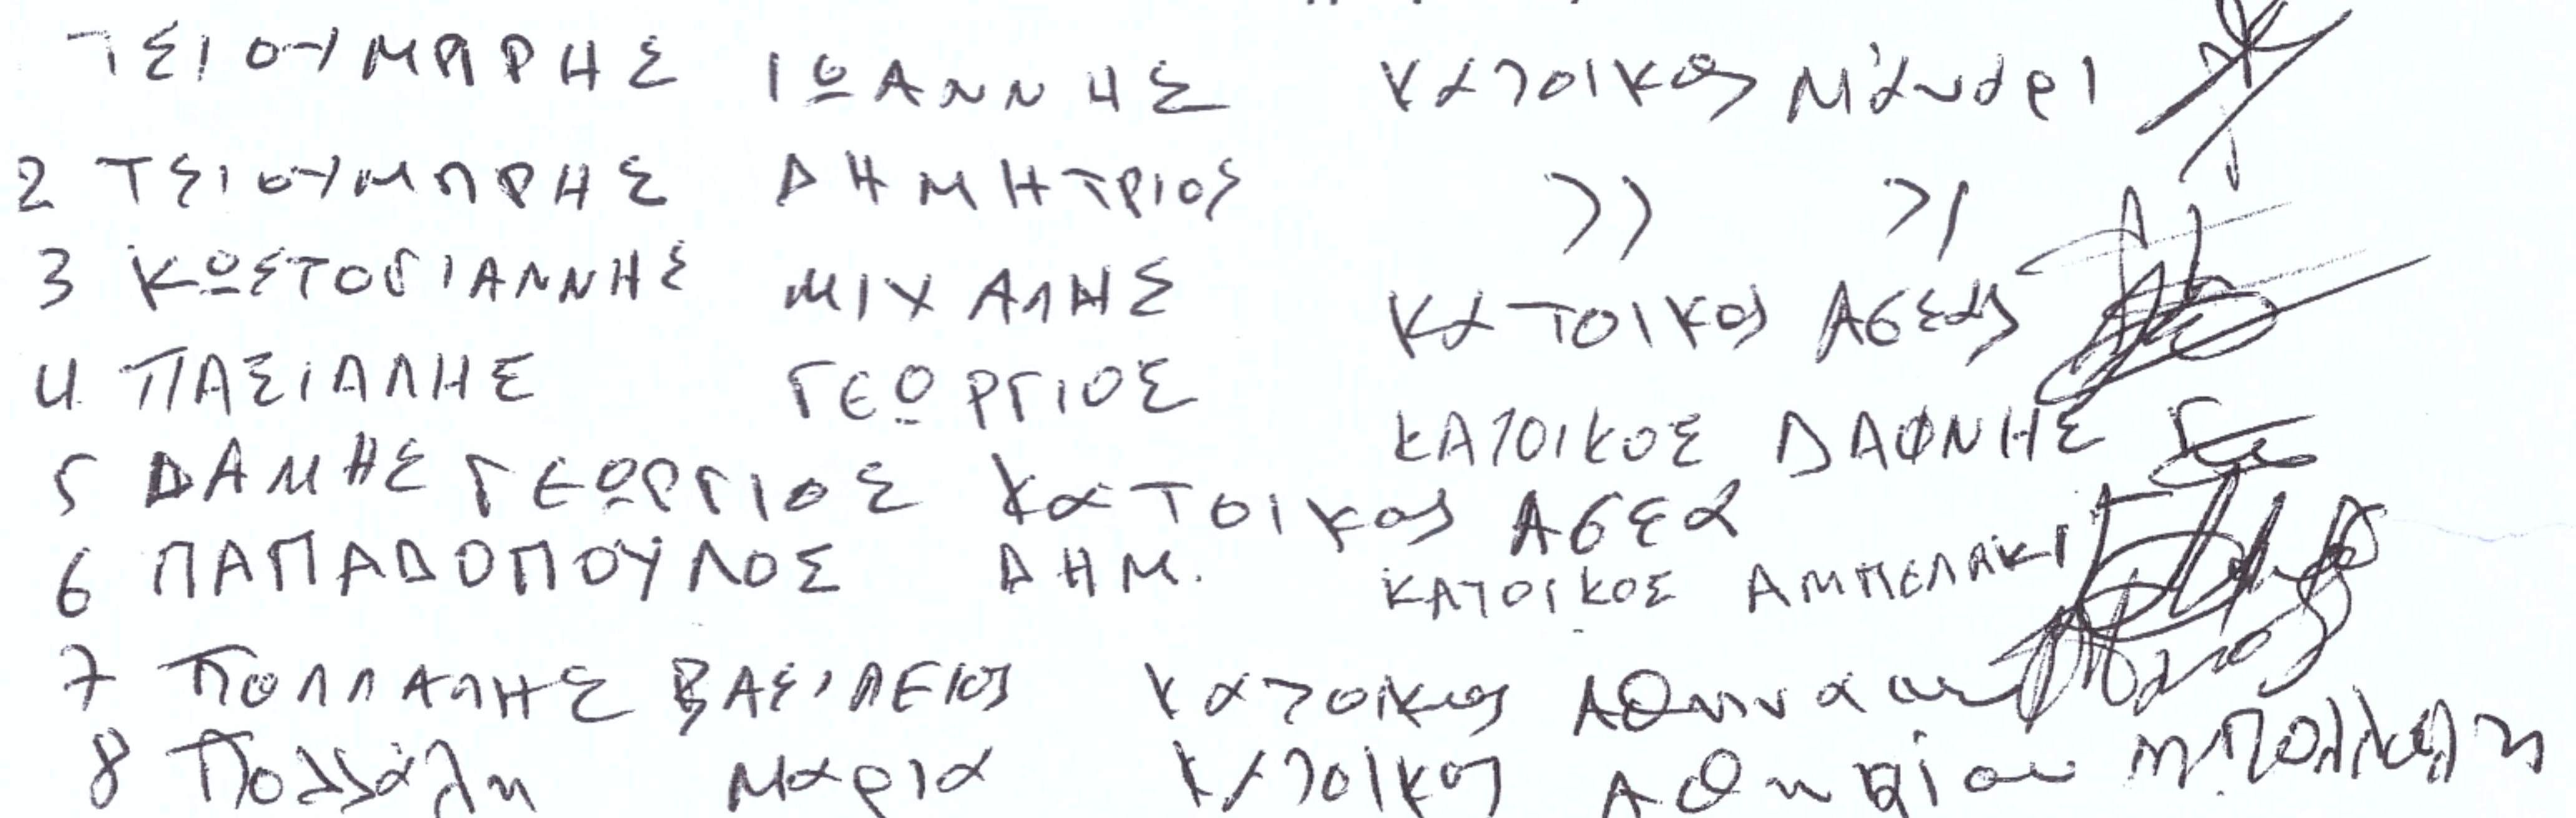 ΤΣΙΟΥΜΠΡΗΣ ΙΩΑΝΝΗΣ κατοικος Μάναρι
2 ΤΣΙΟΥΜΠΡΗΣ ΔΗΜΗΤΡΙΟς >> >>
3 ΚΩΣΤΟΓΙΑΝΝΗΣ ΜΙΧΑΛΗΣ κατοικος Ασεας
4 ΠΑΣΙΑΛΗΣ ΓΕΩΡΓΙΟΣ ΚΑΤΟΙΚΟΣ ΔΑΦΝΗΣ
5 ΔΑΜΗΣ ΓΕΩΡΓΙΟΣ κατοικος Ασεα
6 ΠΑΠΑΔΟΠΟΥΛΟΣ ΔΗΜ. ΚΑΤΟΙΚΟΣ ΑΜΠΕΛΑΚΙ
7 ΠΟΛΛΑΛΗΣ ΒΑΣΙΛΕΙΟς κατοικος
8 Πολλάλη Μαρια κατοικος Μ Πολλαλη